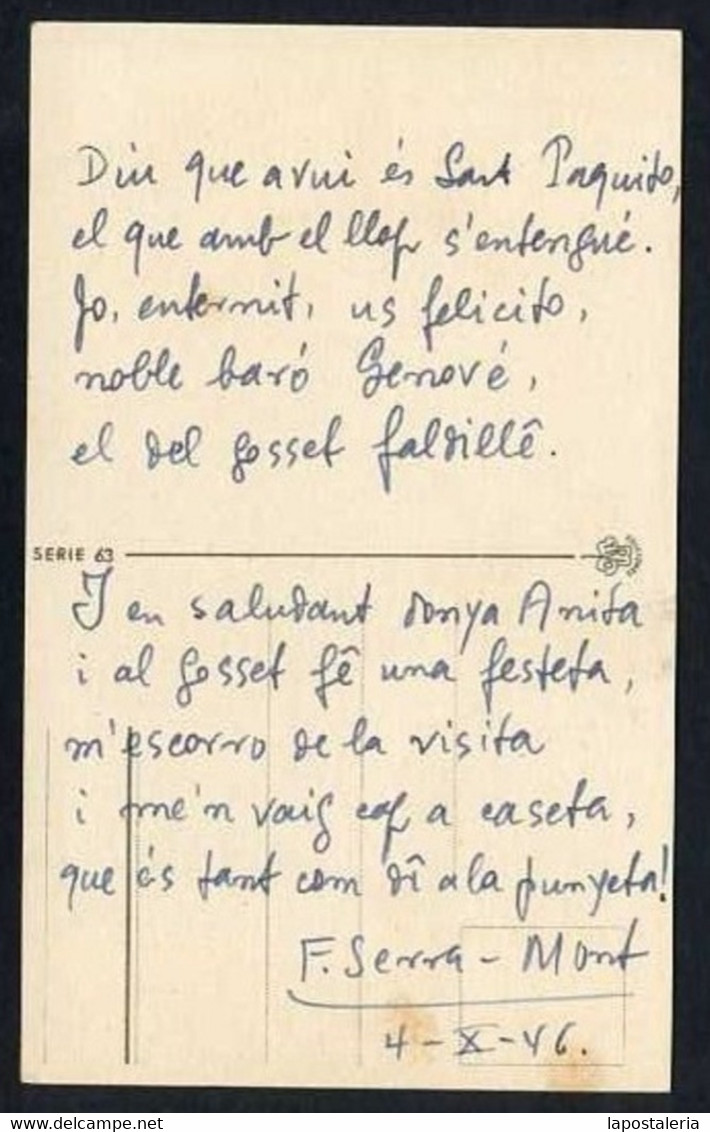 Diu que avui és Sant Paquito,
el que amb el llop s'entengué.
Jo, enternit, us felicito,
noble baró Genové,
el del gosset faldillê.
SERIE 63
I en saludant donya Anita
i al gosset fê una festeta,
m'escorro de la visita
i me'n vaig cap a caseta,
que és tant com dî a la punyeta!
F. Serra-Mont
4-X-46.
delcampe.net
lapostaleria